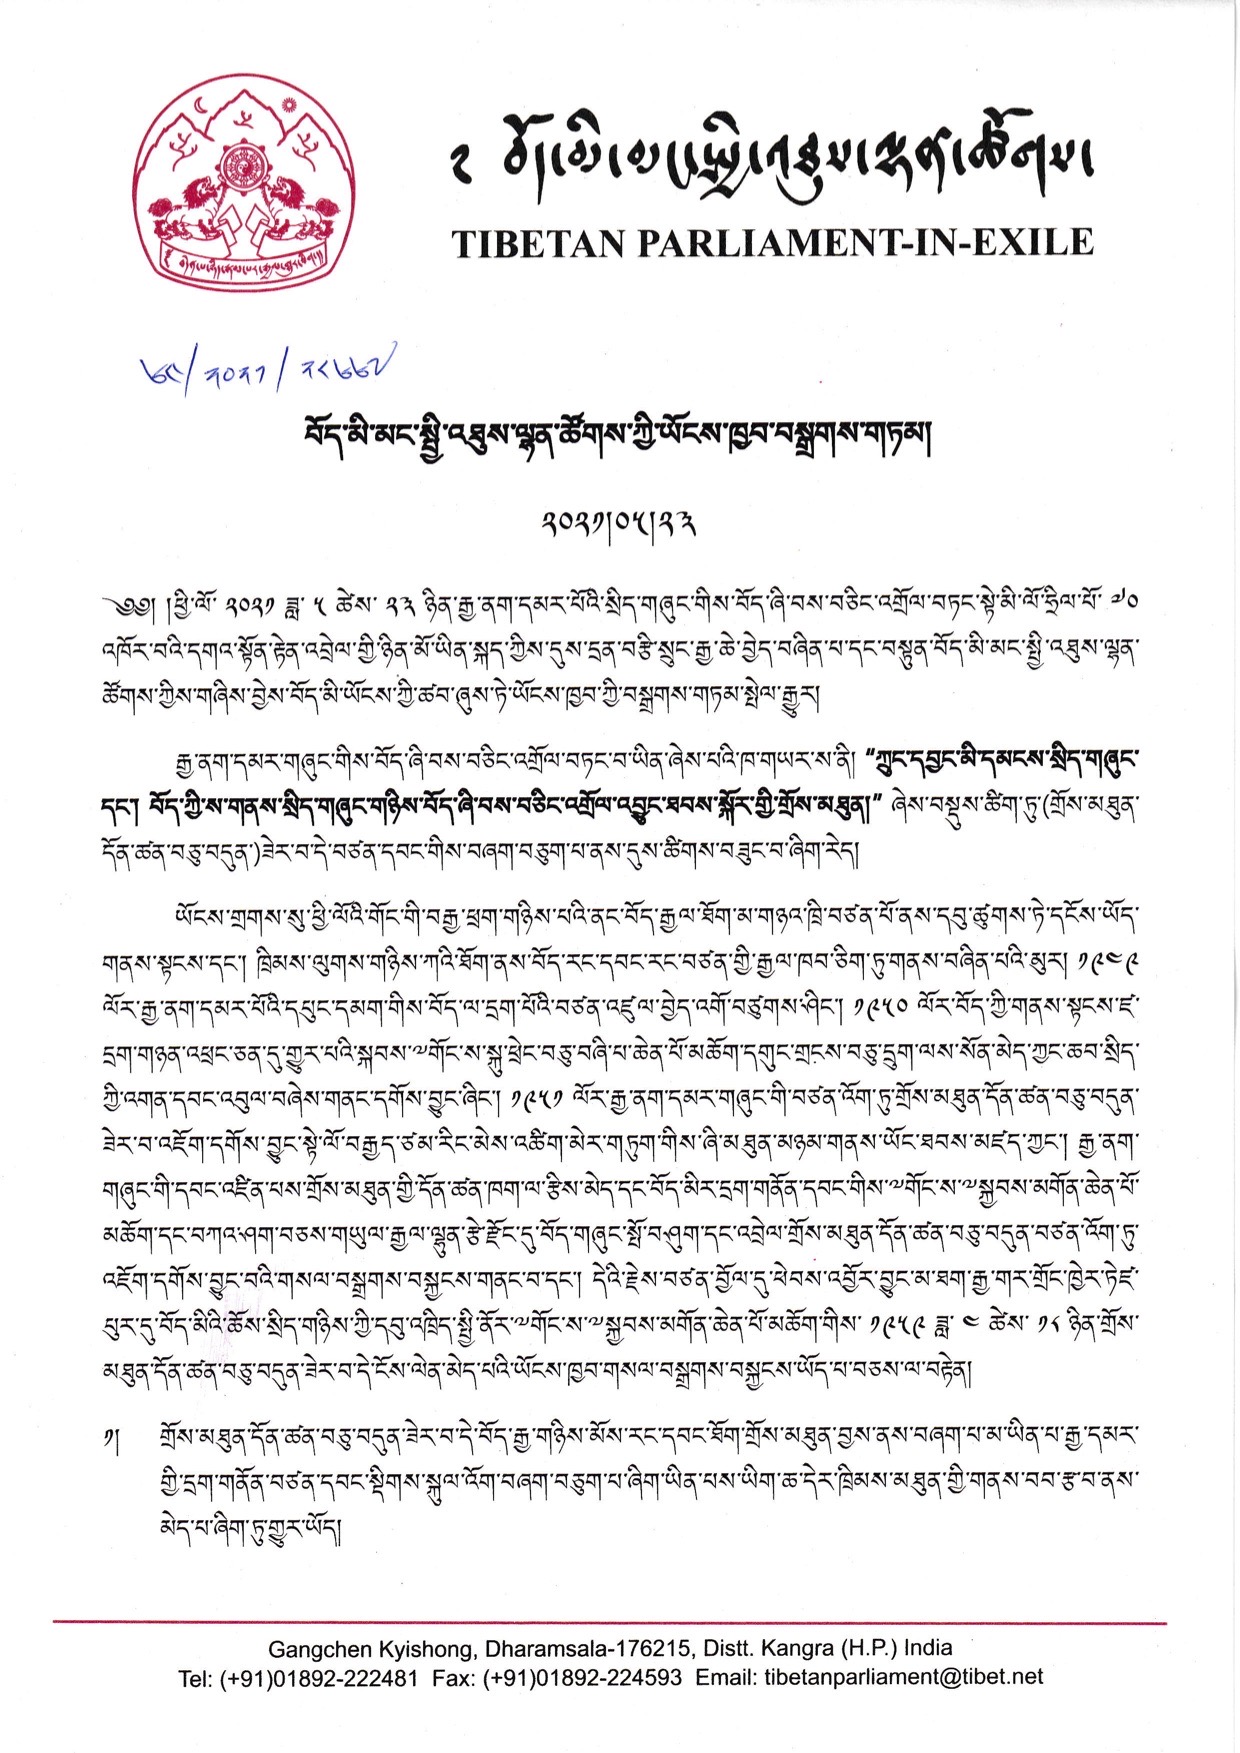 ༡ བོད་མི་མང་སྤྱི་འཐུས་ལྷན་ཚོགས།
TIBETAN PARLIAMENT-IN-EXILE
བོད་མི་མང་སྤྱི་འཐུས་ལྷན་ཚོགས་ཀྱི་ཡོངས་ཁྱབ་བསྒྲགས་གཏམ།
༢༠༢༡།༠༥།༢༣
༄༅། །ཕྱི་ལོ་ ༢༠༢༡ ཟླ་ ༥ ཚེས་ ༢༣ ཉིན་རྒྱ་ནག་དམར་པོའི་སྲིད་གཞུང་གིས་བོད་ཞི་བས་བཅིང་འགྲོལ་བཏང་སྟེ་མི་ལོ་ཧྲིལ་པོ་ ༧༠
འཁོར་བའི་དགའ་སྟོན་རྟེན་འབྲེལ་གྱི་ཉིན་མོ་ཡིན་སྐད་ཀྱིས་དུས་དྲན་བརྩི་སྲུང་རྒྱ་ཆེ་བྱེད་བཞིན་པ་དང་བསྟུན་བོད་མི་མང་སྤྱི་འཐུས་ལྷན་
ཚོགས་ཀྱིས་གཞིས་བྱེས་བོད་མི་ཡོངས་ཀྱི་ཚབ་ཞུས་ཏེ་ཡོངས་ཁྱབ་ཀྱི་བསྒྲགས་གཏམ་སྤེལ་རྒྱུར།
རྒྱ་ནག་དམར་གཞུང་གིས་བོད་ཞི་བས་བཅིང་འགྲོལ་བཏང་བ་ཡིན་ཞེས་པའི་ཁ་གཡར་ས་ནི། “ཀྲུང་དབྱང་མི་དམངས་སྲིད་གཞུང་
དང་། བོད་ཀྱི་ས་གནས་སྲིད་གཞུང་གཉིས་བོད་ཞི་བས་བཅིང་འགྲོལ་འབྱུང་ཐབས་སྐོར་གྱི་གྲོས་མཐུན།” ཞེས་བསྡུས་ཚིག་ཏུ་(གྲོས་མཐུན་
དོན་ཚན་བཅུ་བདུན་)ཟེར་བ་དེ་བཙན་དབང་གིས་བཞག་བཅུག་པ་ནས་དུས་ཚིགས་བཟུང་བ་ཞིག་རེད།
ཡོངས་གྲགས་སུ་ཕྱི་ལོའི་གོང་གི་བརྒྱ་ཕྲག་གཉིས་པའི་ནང་བོད་རྒྱལ་ཐོག་མ་གཉའ་ཁྲི་བཙན་པོ་ནས་དབུ་ཚུགས་ཏེ་དངོས་ཡོད་
གནས་སྟངས་དང་། ཁྲིམས་ལུགས་གཉིས་ཀའི་ཐོག་ནས་བོད་རང་དབང་རང་བཙན་གྱི་རྒྱལ་ཁབ་ཅིག་ཏུ་གནས་བཞིན་པའི་མུར། ༡༩༤༩
ལོར་རྒྱ་ནག་དམར་པོའི་དཔུང་དམག་གིས་བོད་ལ་དྲག་པོའི་བཙན་འཛུལ་བྱེད་འགོ་བཙུགས་ཤིང་། ༡༩༥༠ ལོར་བོད་ཀྱི་གནས་སྟངས་ཛ་
དྲག་གཉན་འཕྲང་ཅན་དུ་གྱུར་པའི་སྐབས་༧གོང་ས་སྐུ་ཕྲེང་བཅུ་བཞི་པ་ཆེན་པོ་མཆོག་དགུང་གྲངས་བཅུ་དྲུག་ལས་སོན་མེད་ཀྱང་ཆབ་སྲིད་
ཀྱི་འགན་དབང་འབུལ་བཞེས་གནང་དགོས་བྱུང་ཞིང་། ༡༩༥༡ ལོར་རྒྱ་ནག་དམར་གཞུང་གི་བཙན་འོག་ཏུ་གྲོས་མཐུན་དོན་ཚན་བཅུ་བདུན་
ཟེར་བ་འཇོག་དགོས་བྱུང་སྟེ་ལོ་བརྒྱད་ཙམ་རིང་མེས་འཚིག་མེར་གཏུག་གིས་ཞི་མཐུན་མཉམ་གནས་ཡོང་ཐབས་མཛད་ཀྱང་། རྒྱ་ནག་
གཞུང་གི་དབང་འཛིན་པས་གྲོས་མཐུན་གྱི་དོན་ཚན་ཁག་ལ་རྩིས་མེད་དང་བོད་མིར་དྲག་གནོན་དབང་གིས་༧གོང་ས་༧སྐྱབས་མགོན་ཆེན་པོ་
མཆོག་དང་བཀའ་ཤག་བཅས་གཡུལ་རྒྱལ་ལྷུན་རྩེ་རྫོང་དུ་བོད་གཞུང་སྤོ་བཤུག་དང་འབྲེལ་གྲོས་མཐུན་དོན་ཚན་བཅུ་བདུན་བཙན་འོག་ཏུ་
འཇོག་དགོས་བྱུང་བའི་གསལ་བསྒྲགས་བསྐྱངས་གནང་བ་དང་། དེའི་རྗེས་བཙན་བྱོལ་དུ་ཕེབས་འབྱོར་བྱུང་མ་ཐག་རྒྱ་གར་གྲོང་ཁྱེར་ཏེཛ་
པུར་དུ་བོད་མིའི་ཆོས་སྲིད་གཉིས་ཀྱི་དབུ་འཁྲིད་སྤྱི་ནོར་༧གོང་ས་༧སྐྱབས་མགོན་ཆེན་པོ་མཆོག་གིས་ ༡༩༥༩ ཟླ་ ༤ ཚེས་ ༡༨ ཉིན་གྲོས་
མཐུན་དོན་ཚན་བཅུ་བདུན་ཟེར་བ་དེ་ངོས་ལེན་མེད་པའི་ཡོངས་ཁྱབ་གསལ་བསྒྲགས་བསྐྱངས་ཡོད་པ་བཅས་ལ་བརྟེན།
༡། གྲོས་མཐུན་དོན་ཚན་བཅུ་བདུན་ཟེར་བ་དེ་བོད་རྒྱ་གཉིས་མོས་རང་དབང་ཐོག་གྲོས་མཐུན་བྱས་ནས་བཞག་པ་མ་ཡིན་པ་རྒྱ་དམར་
གྱི་དྲག་གནོན་བཙན་དབང་སྡིགས་སྐུལ་འོག་བཞག་བཅུག་པ་ཞིག་ཡིན་པས་ཡིག་ཆ་དེར་ཁྲིམས་མཐུན་གྱི་གནས་བབ་རྩ་བ་ནས་
མེད་པ་ཞིག་ཏུ་གྱུར་ཡོད།
Gangchen Kyishong, Dharamsala-176215, Distt. Kangra (H.P.) India
Tel: (+91)01892-222481 Fax: (+91)01892-224593 Email: tibetanparliament@tibet.net